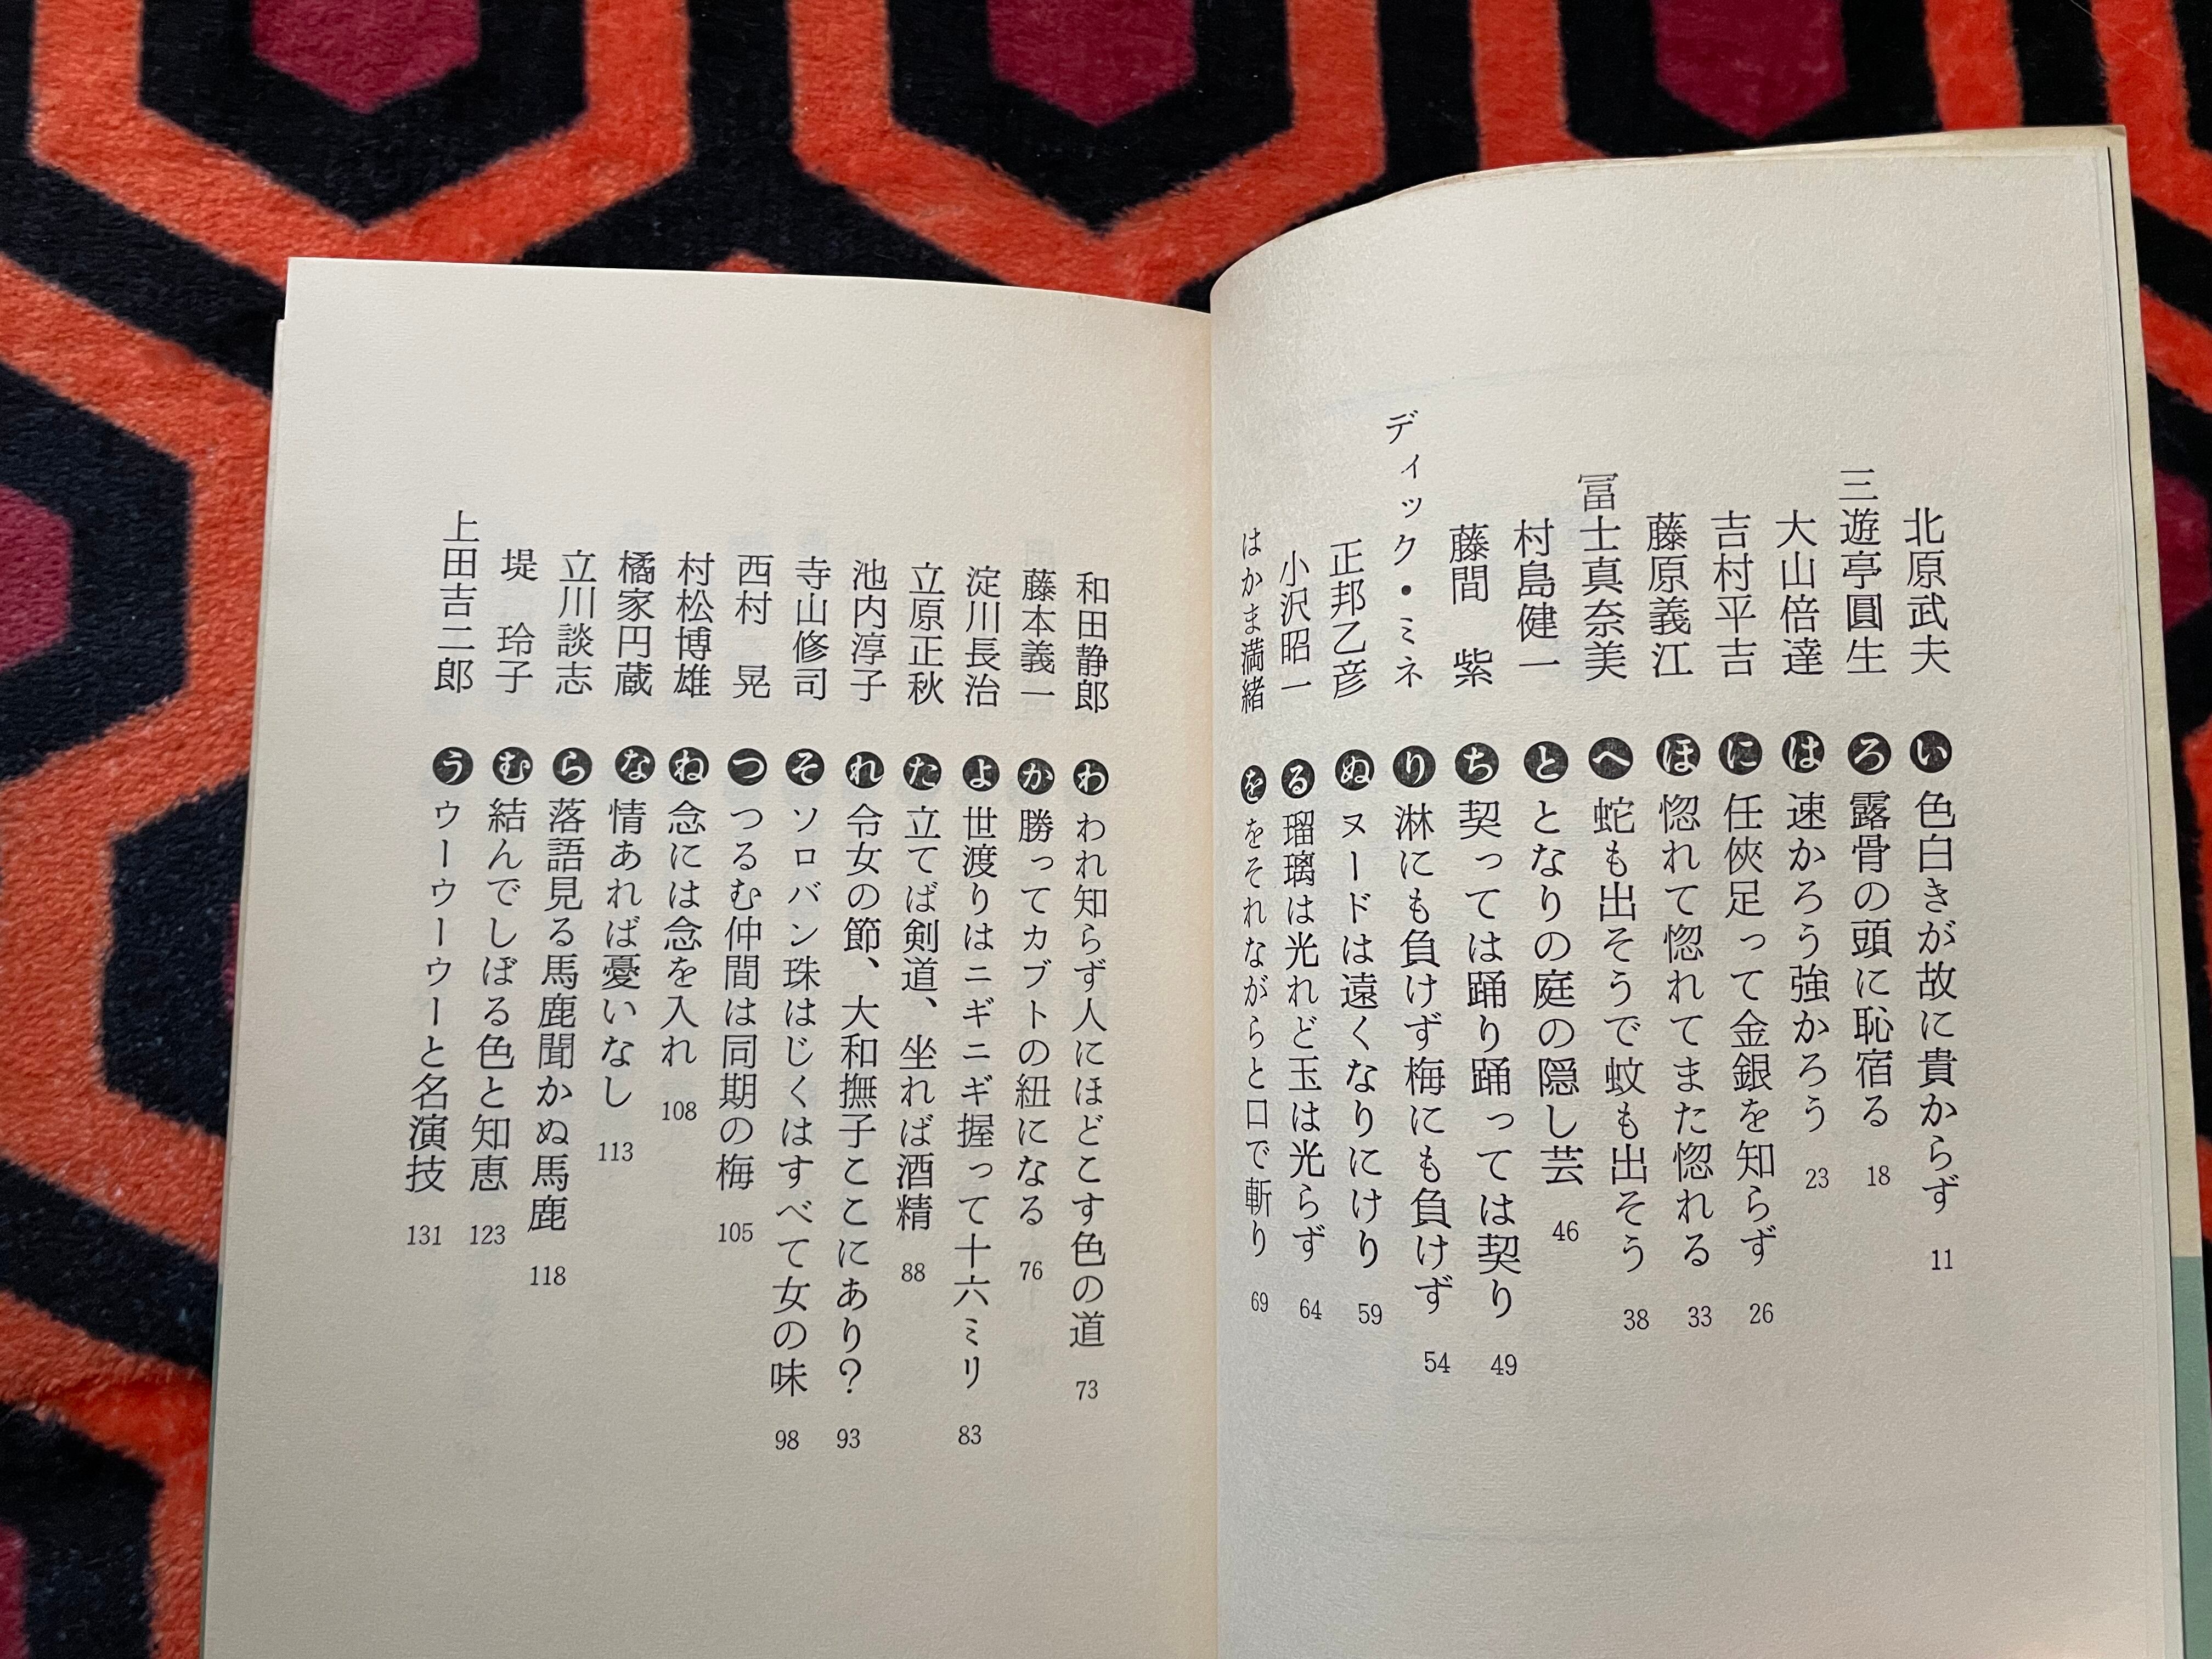 北原武夫 い 色白きが故に貴からず 11
三遊亭圓生 ろ 露骨の頭に恥宿る 18
大山倍達 は 速かろう強かろう 23
吉村平吉 に 任俠足って金銀を知らず 26
藤原義江 ほ 惚れて惚れてまた惚れる 33
冨士真奈美 へ 蛇も出そうで蚊も出そう 38
村島健一 と となりの庭の隠し芸 46
藤間 紫 ち 契っては踊り踊っては契り 49
ディック・ミネ り 淋にも負けず梅にも負けず 54
正邦乙彦 ぬ ヌードは遠くなりにけり 59
小沢昭一 る 瑠璃は光れど玉は光らず 64
はかま満緒 を をそれながらと口で斬り 69
和田静郎 わ われ知らず人にほどこす色の道 73
藤本義一 か 勝ってカブトの紐になる 76
淀川長治 よ 世渡りはニギニギ握って十六ミリ 83
立原正秋 た 立てば剣道、坐れば酒精 88
池内淳子 れ 令女の節、大和撫子ここにあり？ 93
寺山修司 そ ソロバン珠はじくはすべて女の味 98
西村 晃 つ つるむ仲間は同期の梅 105
村松博雄 ね 念には念を入れ 108
橘家円蔵 な 情あれば憂いなし 113
立川談志 ら 落語見る馬鹿聞かぬ馬鹿 118
堤 玲子 む 結んでしぼる色と知恵 123
上田吉二郎 う ウーウーウーと名演技 131